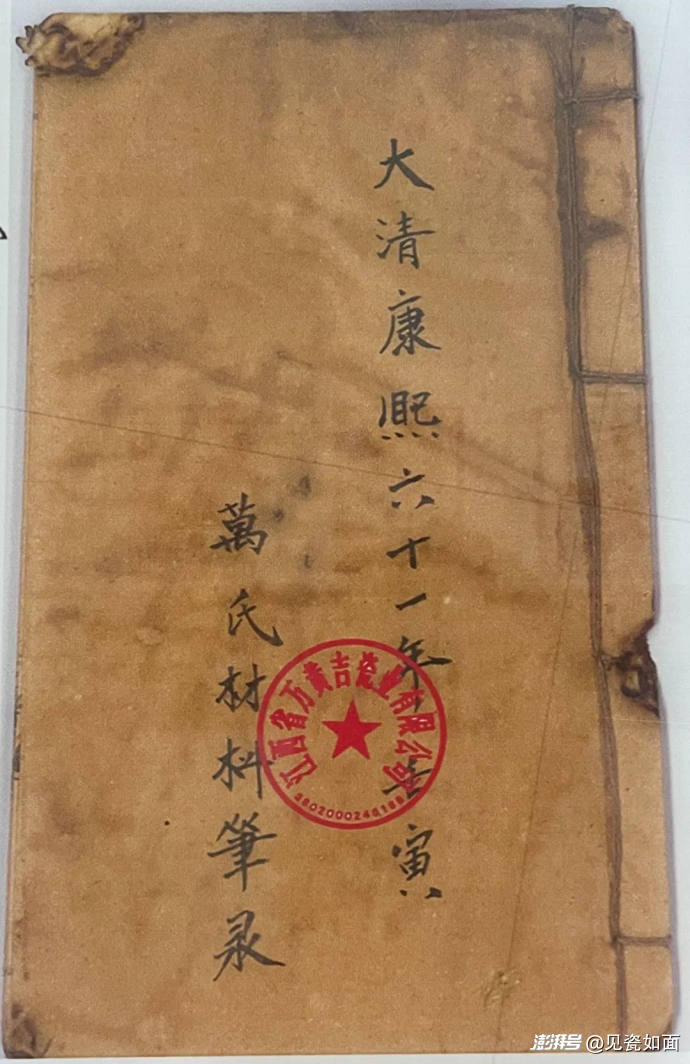 大清康熙六十一年壬寅
萬氏材料筆录
江西省万贵吉瓷业有限公司
澎湃号 @见瓷如面